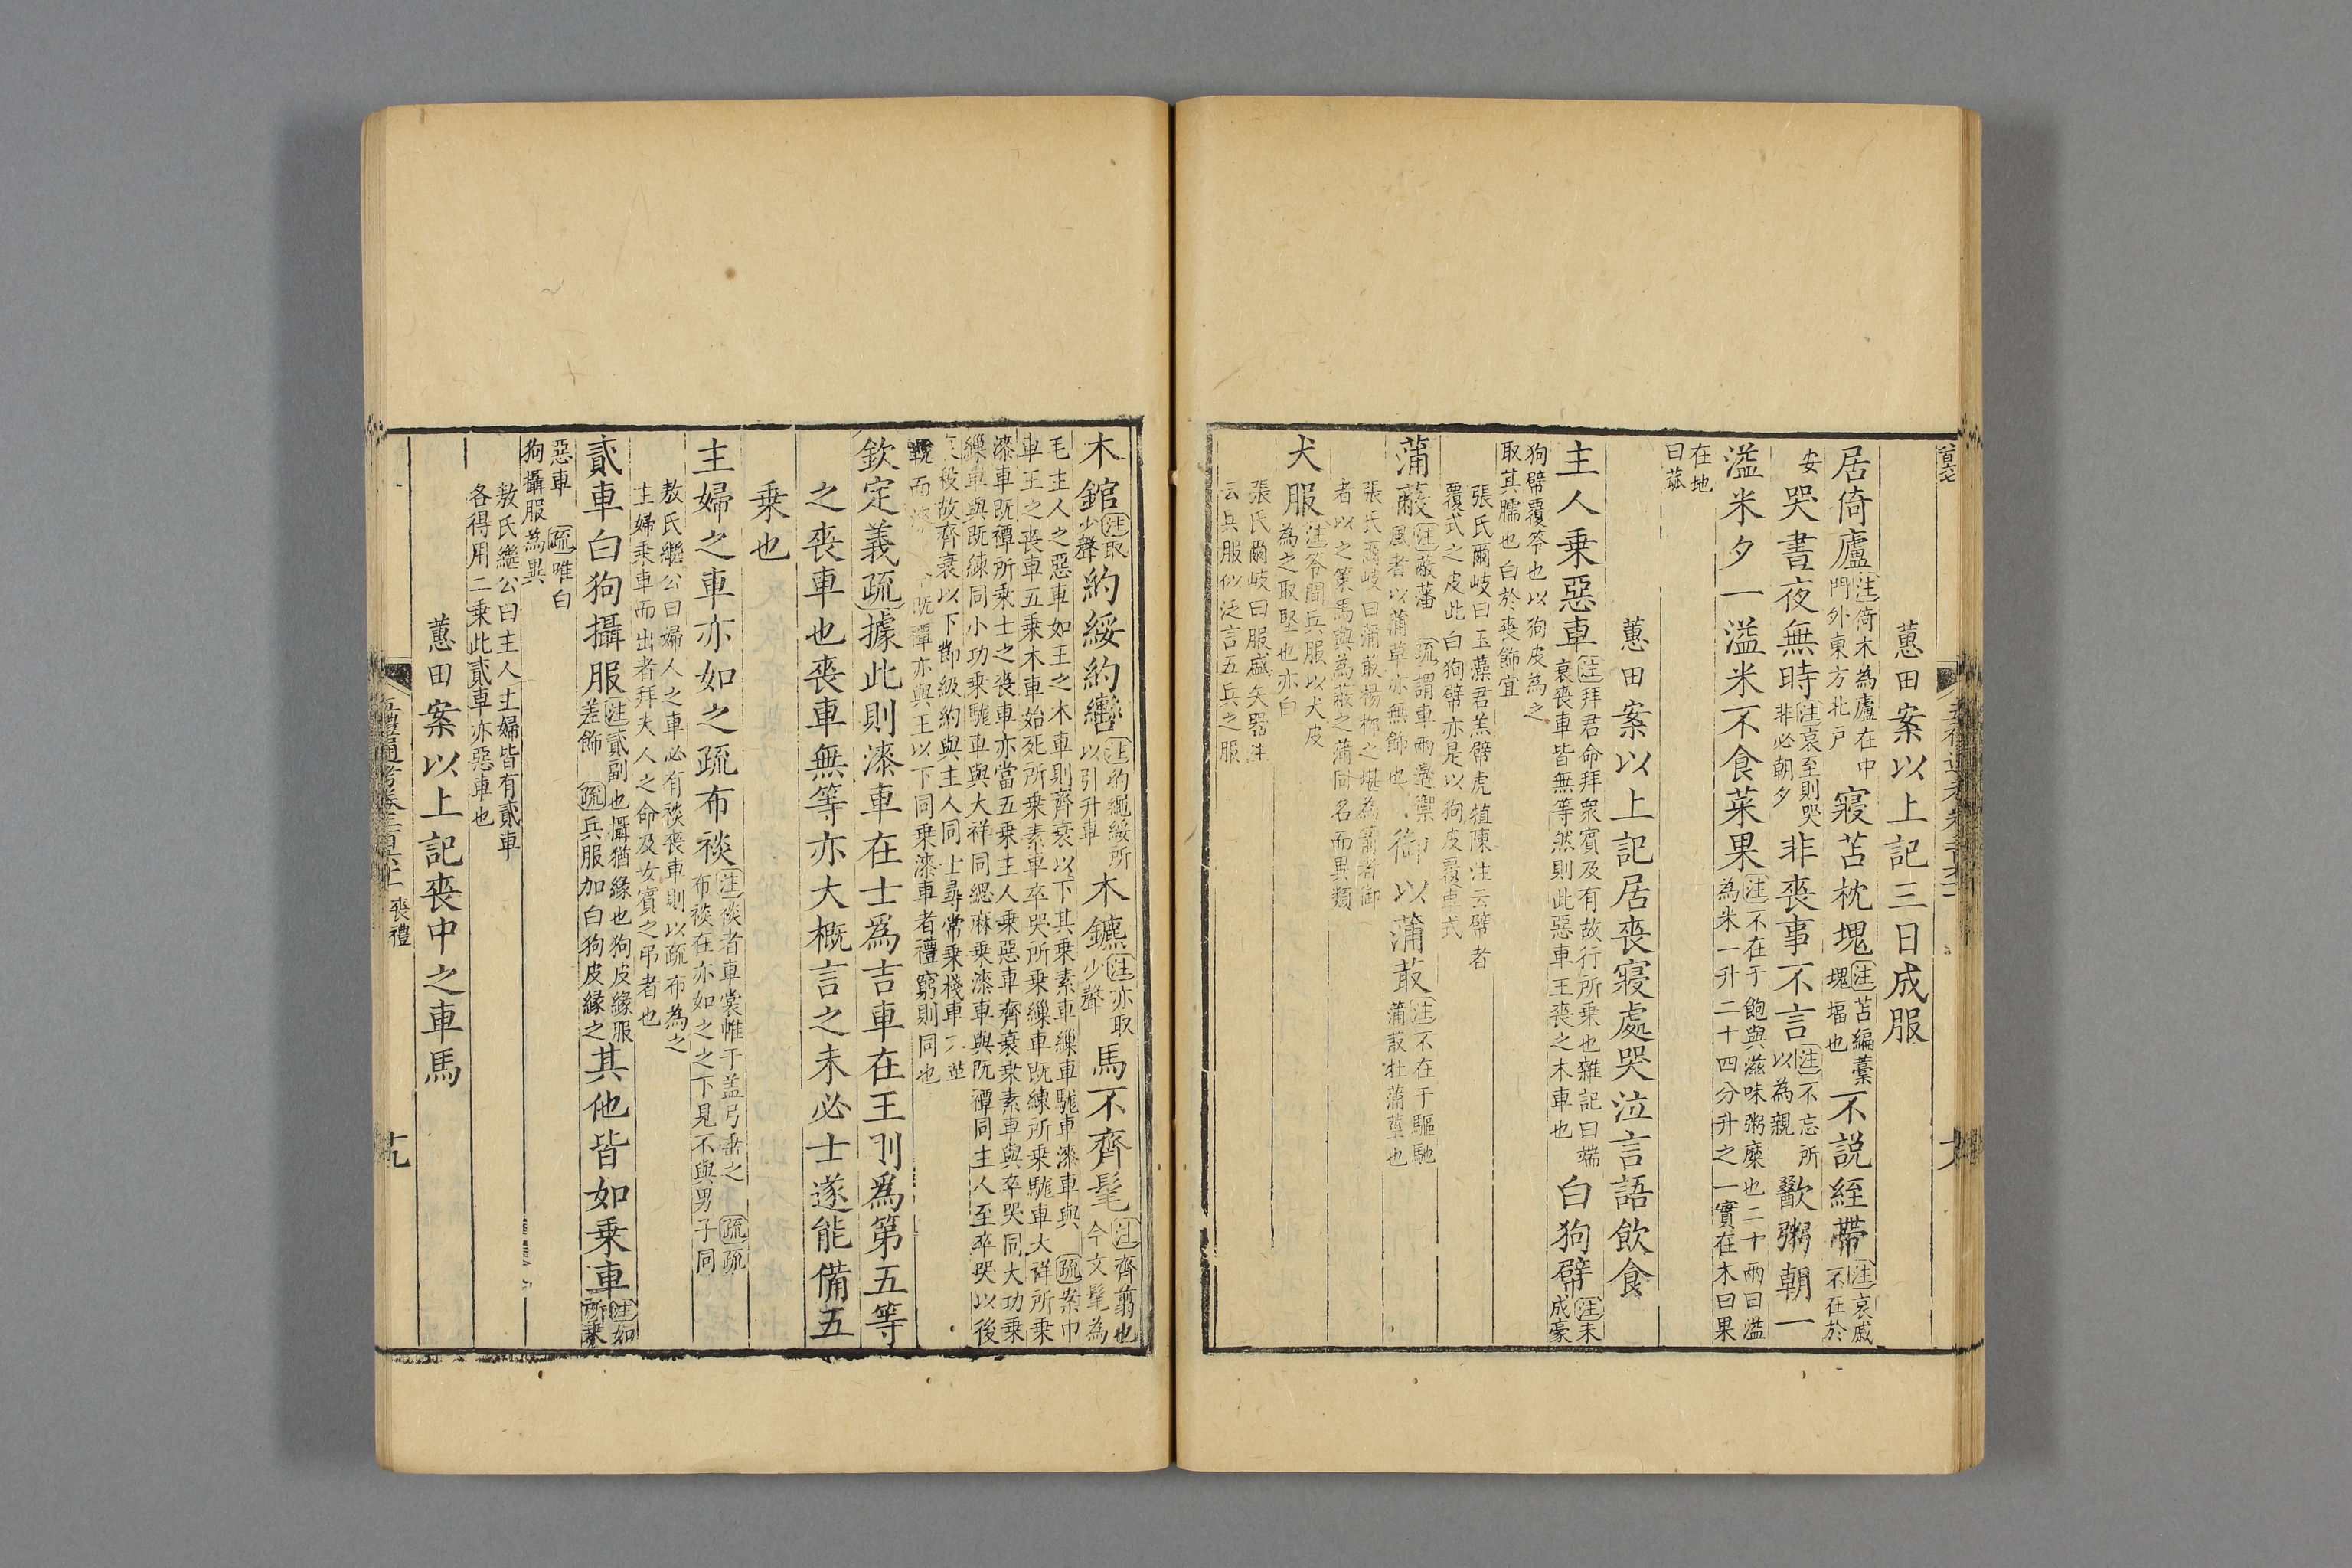 蕙田案以上記三日成服
居倚廬注倚木為廬在中門外東方北戶寢苫枕塊注苫編藁塊堛也不說絰帶注哀戚不在於
安哭晝夜無時注哀至則哭非必朝夕非喪事不言注不忘所以為親歠粥朝一
溢米夕一溢米不食菜果注不在于飽與滋味粥糜也二十兩曰溢為米一升二十四分升之一實在木曰果
在地曰蓏
蕙田案以上記居喪寢處哭泣言語飲食
主人乗惡車注拜君命拜衆賓及有故行所乗也雜記曰端衰喪車皆無等然則此惡車王喪之木車也白狗幦注未成豪
狗幦覆笭也以狗皮為之取其臑也白於喪飾宜
張氏爾岐曰玉藻君羔幦虎犆陳注云幦者覆式之皮此白狗幦亦是以狗皮覆車式
蒲蔽注蔽藩疏謂車兩邊禦風者以蒲草亦無飾也御以蒲菆注不在于驅馳蒲菆牡蒲莖也
張氏爾岐曰蒲菆楊桺之堪為箭者御者以之策馬與為蔽之蒲同名而異類
犬服注笭間兵服以犬皮為之取堅也亦白
張氏爾岐曰服盛矢器注云兵服似泛言五兵之服
木錧注取少聲約綏約轡注約繩綏所以引升車木鑣注亦取少聲馬不齊髦注齊翦也今文髦為
毛主人之惡車如王之木車則齊衰以下其乗素車繅車駹車漆車與疏案巾車王之喪車五乗木車始死所乗素車卒哭所乗繅車既練所乗駹車大祥所乗
漆車既禫所乗士之喪車亦當五乗主人乗惡車齊衰乗素車與卒哭同大功乗繅車與既練同小功乗駹車與大祥同緦麻乗漆車與既禫同主人至卒哭以後
故齊衰以下節級約與主人同士尋常乗棧車既禫亦與王以下同乗漆車者禮窮則同也
欽定義疏據此則漆車在士爲吉車在王則爲第五等
之喪車也喪車無等亦大槪言之未必士遂能備五
乗也
主婦之車亦如之疏布裧注裧者車裳帷于盖弓垂之疏疏布裧在亦如之之下見不與男子同
敖氏繼公曰婦人之車必有裧喪車則以疏布為之主婦乗車而出者拜夫人之命及女賓之弔者也
貳車白狗攝服注貳副也攝猶緣也狗皮緣服差飾疏兵服加白狗皮緣之其他皆如乗車注如所乗
惡車疏唯白狗攝服為異
敖氏繼公曰主人主婦皆有貳車各得用二乗此貳車亦惡車也
蕙田案以上記喪中之車馬
喪禮